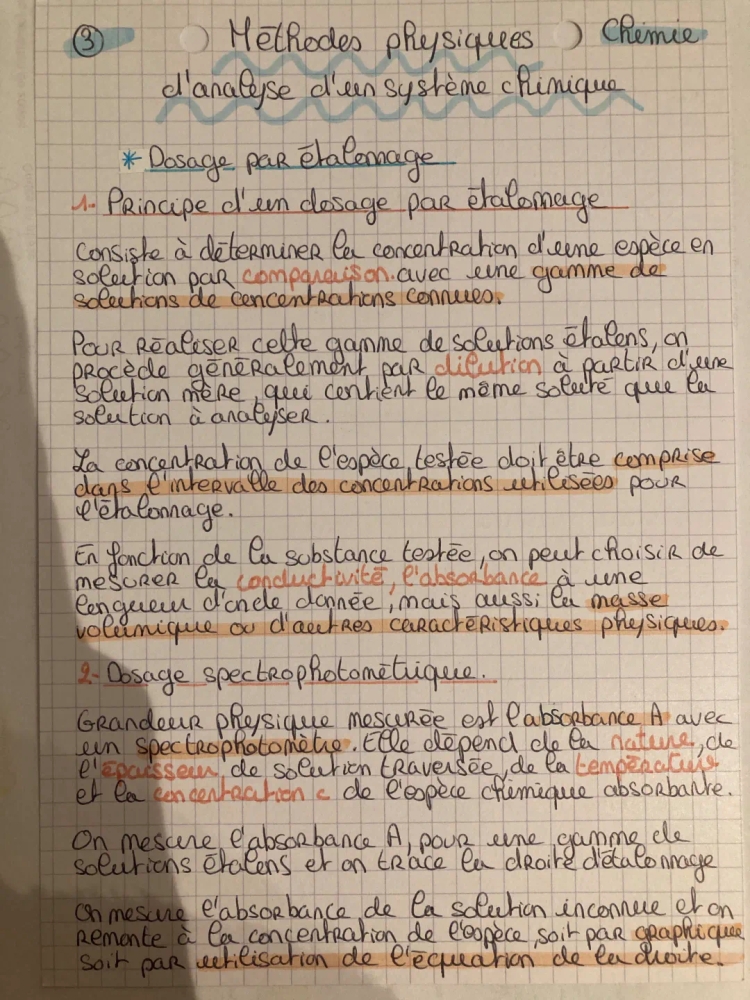 ③ Méthodes physiques Chimie
d'analyse d'un système chimique
* Dosage par étalonnage
1- Principe d'un dosage par étalonnage
Consiste à déterminer la concentration d'une espèce en
solution par comparaison avec une gamme de
solutions de concentrations connues.
Pour réaliser cette gamme de solutions étalons, on
procède généralement par dilution à partir d'une
solution mère, qui contient le même soluté que la
solution à analyser.
La concentration de l'espèce testée doit être comprise
dans l'intervalle des concentrations utilisées pour
l'étalonnage.
En fonction de la substance testée, on peut choisir de
mesurer la conductivité, l'absorbance à une
longueur d'onde donnée, mais aussi la masse
volumique ou d'autres caractéristiques physiques.
2- Dosage spectrophotométrique.
Grandeur physique mesurée est l'absorbance A avec
un spectrophotomètre. Elle dépend de la nature, de
l'épaisseur de solution traversée, de la température
et la concentration c de l'espèce chimique absorbante.
On mesure l'absorbance A, pour une gamme de
solutions étalons et on trace la droite d'étalonnage
On mesure l'absorbance de la solution inconnue et on
remonte à la concentration de l'espèce, soit par graphique
soit par utilisation de l'équation de la droite.